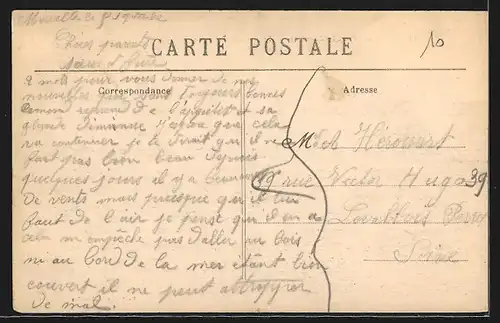 Chers parents
sœur et frère
CARTE POSTALE
10
Correspondance
Adresse
2 mots pour vous donner de mes
nouvelles qui sont toujours bonnes
l'appétit et sa
glande diminue j'espère que cela
va continuer je te dirait que il ne
fait pas bien beau depuis
quelques jours il y a beaucoup
De vents mais puisque qu'il lui
faut de l'air je pense qu'il en a
cela ne empêche pas d'aller au bois
ni au bord de la mer étant bien
couvert il ne peut attrapper
De mal.
Mr A Hérouart
39 rue Victor Hugo 39
Levallois Perret
Seine